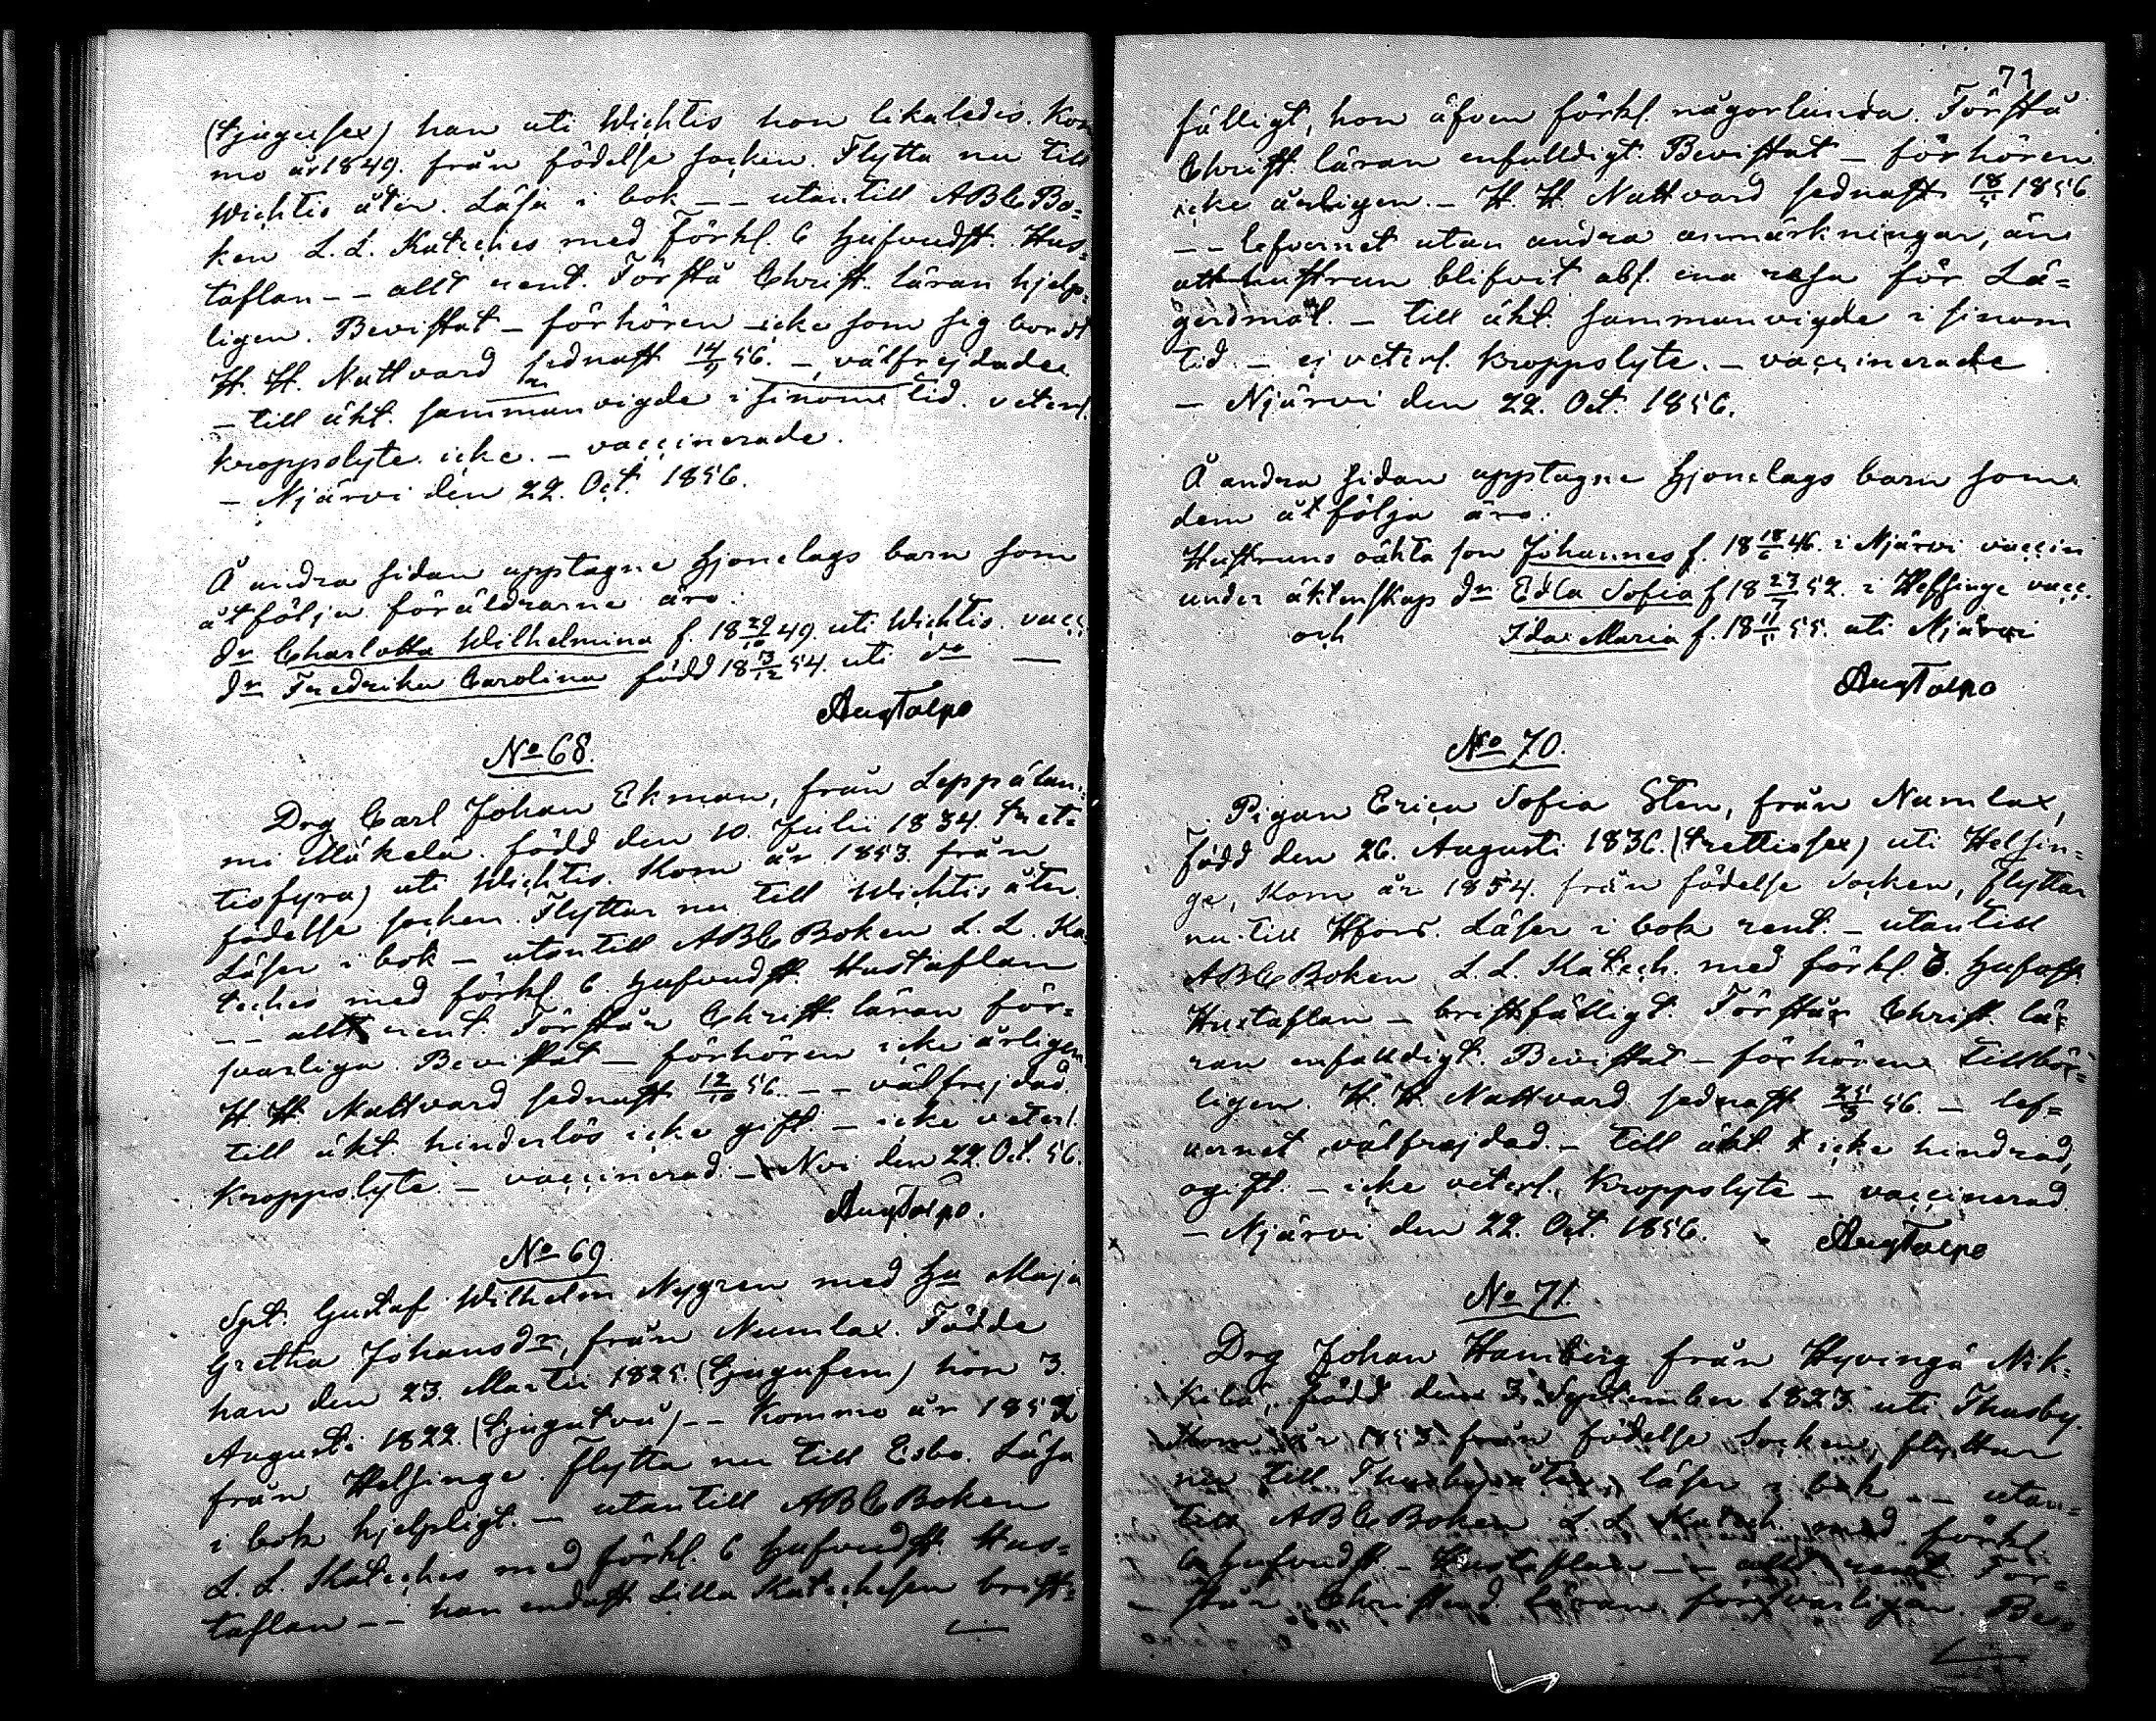 (tjugusex) han uti Wichtis hon likaledes. Kom
mo år 1849. från födelse socken. Flytta nu till
Wichtis åter. Läsa i bok -- utantill ABC Bo=
ken L. L. Kateches med Förkl. 6 hufvudst. Hus=
taflan -- allt rent. Förstå Christ. läran hjelp=
ligen. Bevistat - förhören icke som sig bordt
H. H. Nattvard sednast 14/9 56. -, välfrejdade
- till äkt. sammanvigde i sinom tid. veterl.
kroppslyte icke. - vaccinerade.
- Njärvi den 22. Oct. 1856.
Å andra sidan upptagne hjonelags barn som
åtfölja föräldrarne äro.
dr Charlotta Wilhelmina f. 18 29/10 49. uti Wichtis. vacc.
dr Fredrika Carolina född 18 13/12 54. uti do —
Aug Talpo
No 68.
Drg Carl Johan Ekman, från Leppälam=
mi Mäkelä. född den 10. Julii 1834. (tret=
tiofyra) uti Wichtis. Kom år 1853. från
födelse socken. Flyttar nu till Wichtis åter.
Läser i bok - utantill ABC Boken L. L. Ka=
teches med förkl. 6. hufvudst. Hustaflan
-- allt rent. Förstår Christ. läran för=
svarliga. Bevistat - förhören icke årligen
H. H. Nattvard sednast 12/10 56. -- välfrejdad.
till äkt. hinderlös icke gift - icke veterl.
Kroppslyte. - vaccinerad. - Nvi den 22. Oct. 56.
Aug Talpo.
No 69.
Spt. Gustaf Wilhelm Nygren med hu Maja
Gretha Johansdr, från Numlax. Födde
han den 23. Martii 1825. (tjugufem) hon 3.
Augusti 1822. (tjugutvå) -- Komme år 1852
från Helsinge. Flytta nu till Esbo. Läsa
i bok hjelpligt. - utantill ABC Boken
L. L. Kateches med förkl. 6 hufvudst. Hus=
taflan -- han endast Lilla Katechesen brist=
71
fälligt, hon äfven förkl. någorlunda. Förstå
Christ. läran enfalldigt. Bevistat - förhören
icke årligen. - H. H. Nattvard sednast 18/5 1856.
-- lefvernet utan andra anmärkningar, än
att hustrun blifvit abs. ena resa för Lä=
gersmål. - till äkt. sammanvigde i sinom
tid. - ej veterl. kroppslyte. - vaccinerade
- Njärvi den 22. Oct. 1856.
Å andra sidan upptagne hjonelags barn som
dem åtfölja äro.
Hustruns oäkta son Johannes f. 18 18/6 46. i Njärvi vaccin
under äktenskap dr Edla Sofia f 18 23/7 52. i Helsinge vacc.
och Ida Maria f. 18 11/11 55. uti Njärvi
Aug Talpo
No 70.
Pigan Erica Sofia Sten, från Numlax,
född den 26. Augusti 1836. (trettiosex) uti Helsin=
ge, Kom år 1854. från födelse socken, flyttar
nu till Hfors. Läser i bok rent. - utantill
ABC Boken L. L. Katech. med förkl. 6. hufvst.
Hustaflan - bristfälligt. Förstår Christ. lä=
ran enfalldigt. Bevistat - förhören tillbör=
ligen. H. H. Nattvard sednast 25/3 56. - lef=
vernet välfrejdad. - till äkt. icke hindrad,
ogift. - icke veterl. Kroppslyte - vaccinerad.
- Njärvi den 22. Oct. 1856. Aug Talpo
No 71.
Drg Johan Hamberg från Hyvingä Nik=
kilä, född den 3. September 1823. uti Thusby.
Kom år 1853 från födelse Socken, flyttar
nu till Thusby åter, läser i bok -- utan=
till ABC Boken L. L. Katech. med förkl.
6 hufvudst. - Hustaflan -- allt rent. För=
står Christend. läran försvarligen. Be=